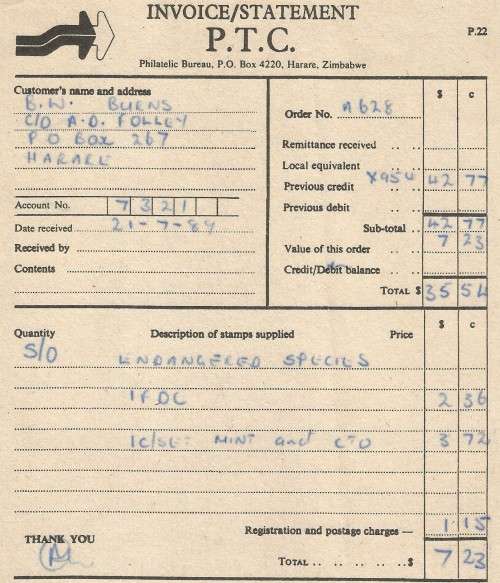 INVOICE/STATEMENT
P.T.C.
P.22
Philatelic Bureau, P.O. Box 4220, Harare, Zimbabwe
Customer's name and address
B.W. BURNS
C/O A.D. FOLLEY
P O Box 267
HARARE
Account No. 7321
Date received 21-7-89
Received by
Contents
$ c
Order No. A628
Remittance received
Local equivalent
Previous credit X954 42 77
Previous debit
Sub-total 42 77
Value of this order 7 23
Credit/Debit balance
TOTAL $ 35 54
Quantity Description of stamps supplied Price $ c
S/O ENDANGERED SPECIES
1 FDC 2 36
1C/SET MINT and CTO 3 72
Registration and postage charges — 1 15
THANK YOU
TOTAL $ 7 23